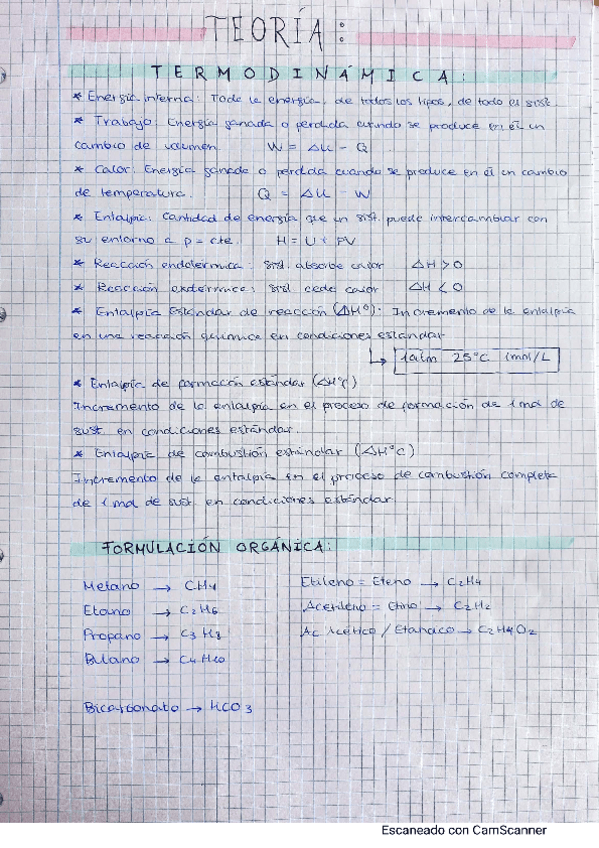 TEORÍA:
TERMODINÁMICA:
* Energía interna: Toda la energía, de todos los tipos, de todo el sist.
* Trabajo: Energía ganada o perdida cuando se produce en él un
cambio de volumen. W = ΔU - Q
* Calor: Energía ganada o perdida cuando se produce en él un cambio
de temperatura. Q = ΔU - W
* Entalpía: Cantidad de energía que un sist. puede intercambiar con
su entorno a p = cte. H = U + PV
* Reacción endotérmica: sist. absorbe calor ΔH > 0
* Reacción exotérmica: sist cede calor ΔH < 0
* Entalpía Estándar de reacción (ΔHº): Incremento de la entalpía
en una reacción química en condiciones estándar
↳ 1atm 25°C 1mol/L
* Entalpía de formación estándar (ΔHºf)
Incremento de la entalpía en el proceso de formación de 1 mol de
sust. en condiciones estándar.
* Entalpía de combustión estándar (ΔHºc)
Incremento de la entalpía en el proceso de combustión completa
de 1 mol de sust. en condiciones estándar.
FORMULACIÓN ORGÁNICA:
Metano → CH4 Etileno = Eteno → C2H4
Etano → C2H6 Acetileno = Etino → C2H2
Propano → C3H8 Ac Acético / Etanoico → C2H4O2
Butano → C4H10
Bicarbonato → HCO3
Escaneado con CamScanner